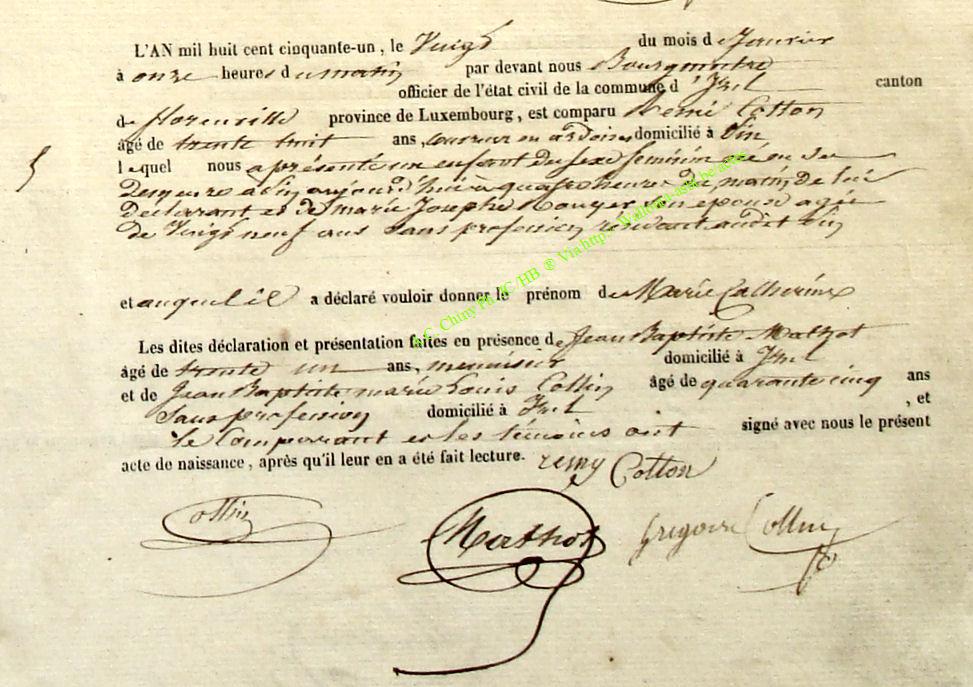 L'AN mil huit cent cinquante-un, le Vingt du mois de Janvier
à onze heures du matin par devant nous Bourgmestre
officier de l'état civil de la commune d'Izel canton
de florenville province de Luxembourg, est comparu Remi Cotton
âgé de trente huit ans, ouvrier en ardoises domicilié à Pin
lequel nous a présenté un enfant du sexe féminin né en sa
demeure à Pin aujourd'hui à quatre heures du matin de lui
déclarant et de marie Josephe Rouyer son épouse agée
de Vingt neuf ans sans profession résidant audit Pin
et auquel il a déclaré vouloir donner le prénom de Marie Catherine
Les dites déclaration et présentation faites en présence de Jean Baptiste Mathot
âgé de trente un ans, menuisier domicilié à Izel
et de Jean Baptiste marie Louis Collin âgé de quarante cinq ans
Sans profession domicilié à Izel , et
le Comparant et les témoins ont signé avec nous le présent
acte de naissance, après qu'il leur en a été fait lecture. remy Cotton
Collin Mathot Grégoire Collin
A.C. Chiny Ph. JC HB ® Via http://